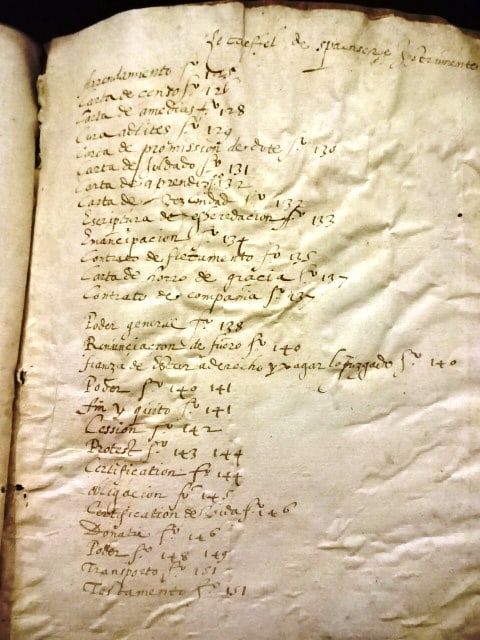 de spaensche Instrumenten
Arrendamiento fo 125
Carta de censo fo 126
Carta de amedias fo 128
Cura adlites fo 129
Carta de promission de dote fo 130
Carta de soldado fo 131
Carta de aprendis 132
Carta de fo 132
Escriptura de fo 133
Emancipacion fo 134
Contrato de fletamento fo 135
Carta de horro de gracia fo 137
Contrato de compania fo 137
Poder general fo 138
Renunciacion de fuero fo 140
fianza de estar a derecho y pagar lo juzgado fo 140
Poder fo 140 141
fin y quito fo 141
Cession fo 142
Protest fo 143 144
Certification fo 144
obligacion fo 145
Certification de vida fo 146
Donatio fo 146
Poder fo 148 149
Transporto fo 151
Testamento fo 151